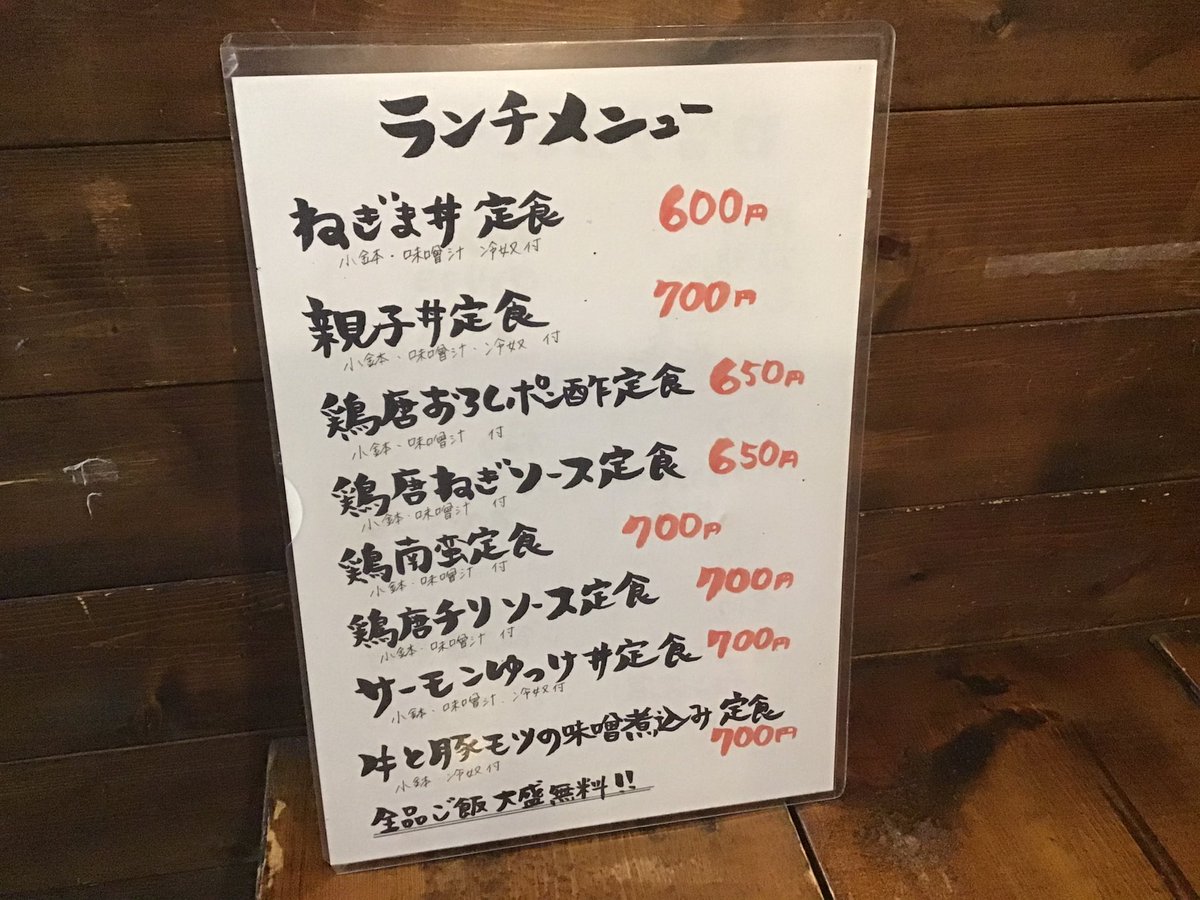 ランチメニュー
ねぎま丼定食 600円
小鉢・味噌汁 冷奴付
親子丼定食 700円
小鉢・味噌汁・冷奴 付
鶏唐おろしポン酢定食 650円
小鉢・味噌汁 付
鶏唐ねぎソース定食 650円
小鉢・味噌汁 付
鶏南蛮定食 700円
小鉢・味噌汁 付
鶏唐チリソース定食 700円
小鉢・味噌汁 付
サーモンゆっけ丼定食 700円
小鉢・味噌汁・冷奴付
牛と豚モツの味噌煮込み定食
700円
小鉢 冷奴付
全品ご飯大盛無料!!